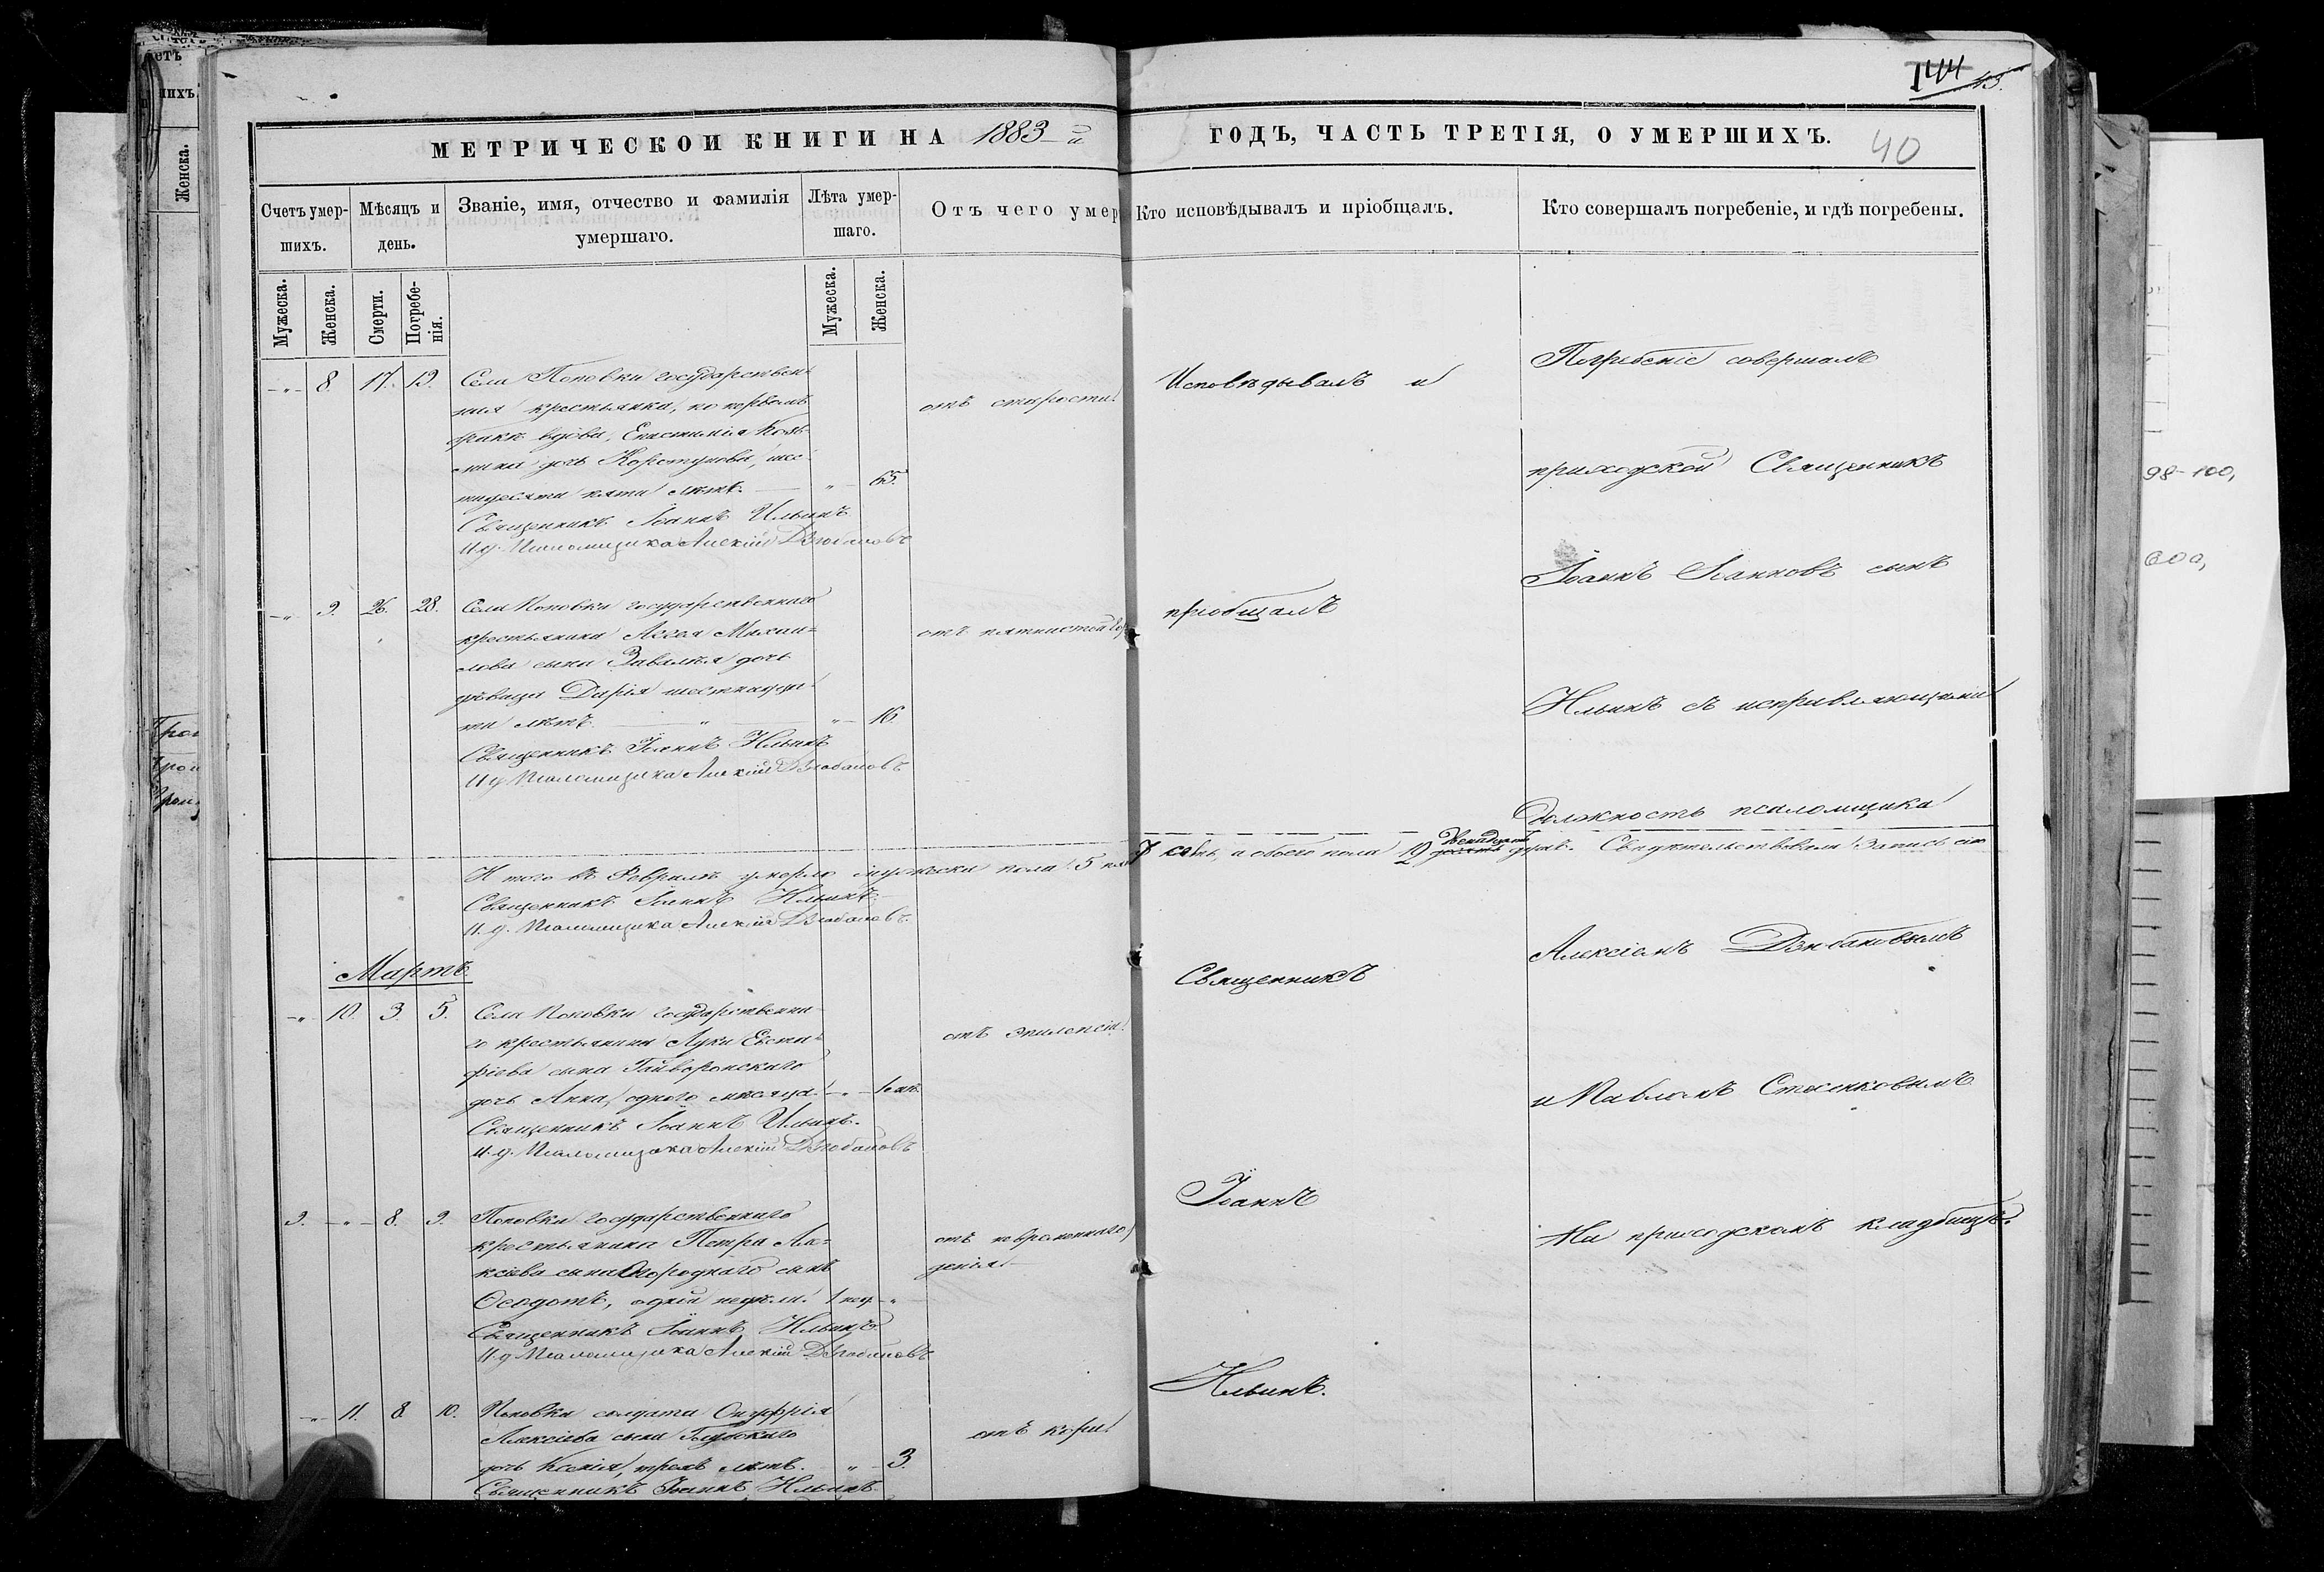 144
43.
40
МЕТРИЧЕСКОЙ КНИГИ НА 1883-й ГОДЪ, ЧАСТЬ ТРЕТІЯ, О УМЕРШИХЪ.
Счетъ умершихъ.
Мѣсяцъ и день.
Званіе, имя, отчество и фамилія умершаго.
Лѣта умершаго.
Отъ чего умер
Кто исповѣдывалъ и пріобщалъ.
Кто совершалъ погребеніе, и гдѣ погребены.
Мужеска.
Женска.
Смерти.
Погребенія.
Мужеска.
Женска.
-"- 8. 17. 19. Села Поповки государствен-
ная крестьянка, по первомъ
бракѣ вдова, Евстиміа Козь-
мина дочь Коростунова, шес-
тидесяти пяти лѣтъ. — " — 65.
отъ старости
Священникъ Іоаннъ Ильинъ
И. д. Псаломщика Алексій Дзюбановъ
-"- 9. 26. 28. Села Поповки государственнаго
крестьянина Аггея Михаи-
лова сына Завалѣя дочь
дѣвица Дарія шестнадца-
ти лѣтъ. — " — 16.
отъ пятнистой гор
Священникъ Іоаннъ Ильинъ
И. д. Псаломщика Алексій Дзюбановъ
Итого въ Февралѣ умерло мужеска пола 5
и обоего пола 12 двѣнадцать душъ. Свидѣтельствовали запись сію
Священникъ Іоаннъ Ильинъ
И. д. Псаломщика Алексій Дзюбановъ.
Мартъ.
-"- 10. 3. 5. Села Поповки государственна-
го крестьянина Луки Евста-
фіева сына Гайворонскаго
дочь Анна, одного мѣсяца. — " — 1 мѣс.
отъ эпилепсіи
Священникъ Іоаннъ Ильинъ.
И. д. Псаломщика Алексій Дзюбановъ
9. -"- 8. 9. Поповки государственнаго
крестьянина Петра Але-
ксіева сына Огороднаго сынъ
Ѳеодотъ, одной недѣли. 1 нед. "
отъ
денія
Священникъ Іоаннъ Ильинъ
И. д. Псаломщика Алексій Дзюбановъ
-"- 11. 8. 10. Поповки солдата Онуфрія
Алексіева сына Глубокаго
дочь Ксенія, трехъ лѣтъ. — " — 3.
отъ кори
Священникъ Іоаннъ Ильинъ
Исповѣдывалъ и
пріобщалъ
Священникъ
Іоаннъ
Ильинъ.
Погребеніе совершалъ
приходской Священникъ
Іоаннъ Іоанновъ сынъ
Ильинъ съ исправляющими
должность псаломщика
Алексіемъ Дзюбановымъ
и Павломъ Стасенковымъ
На приходскомъ кладбищѣ.
98-100,